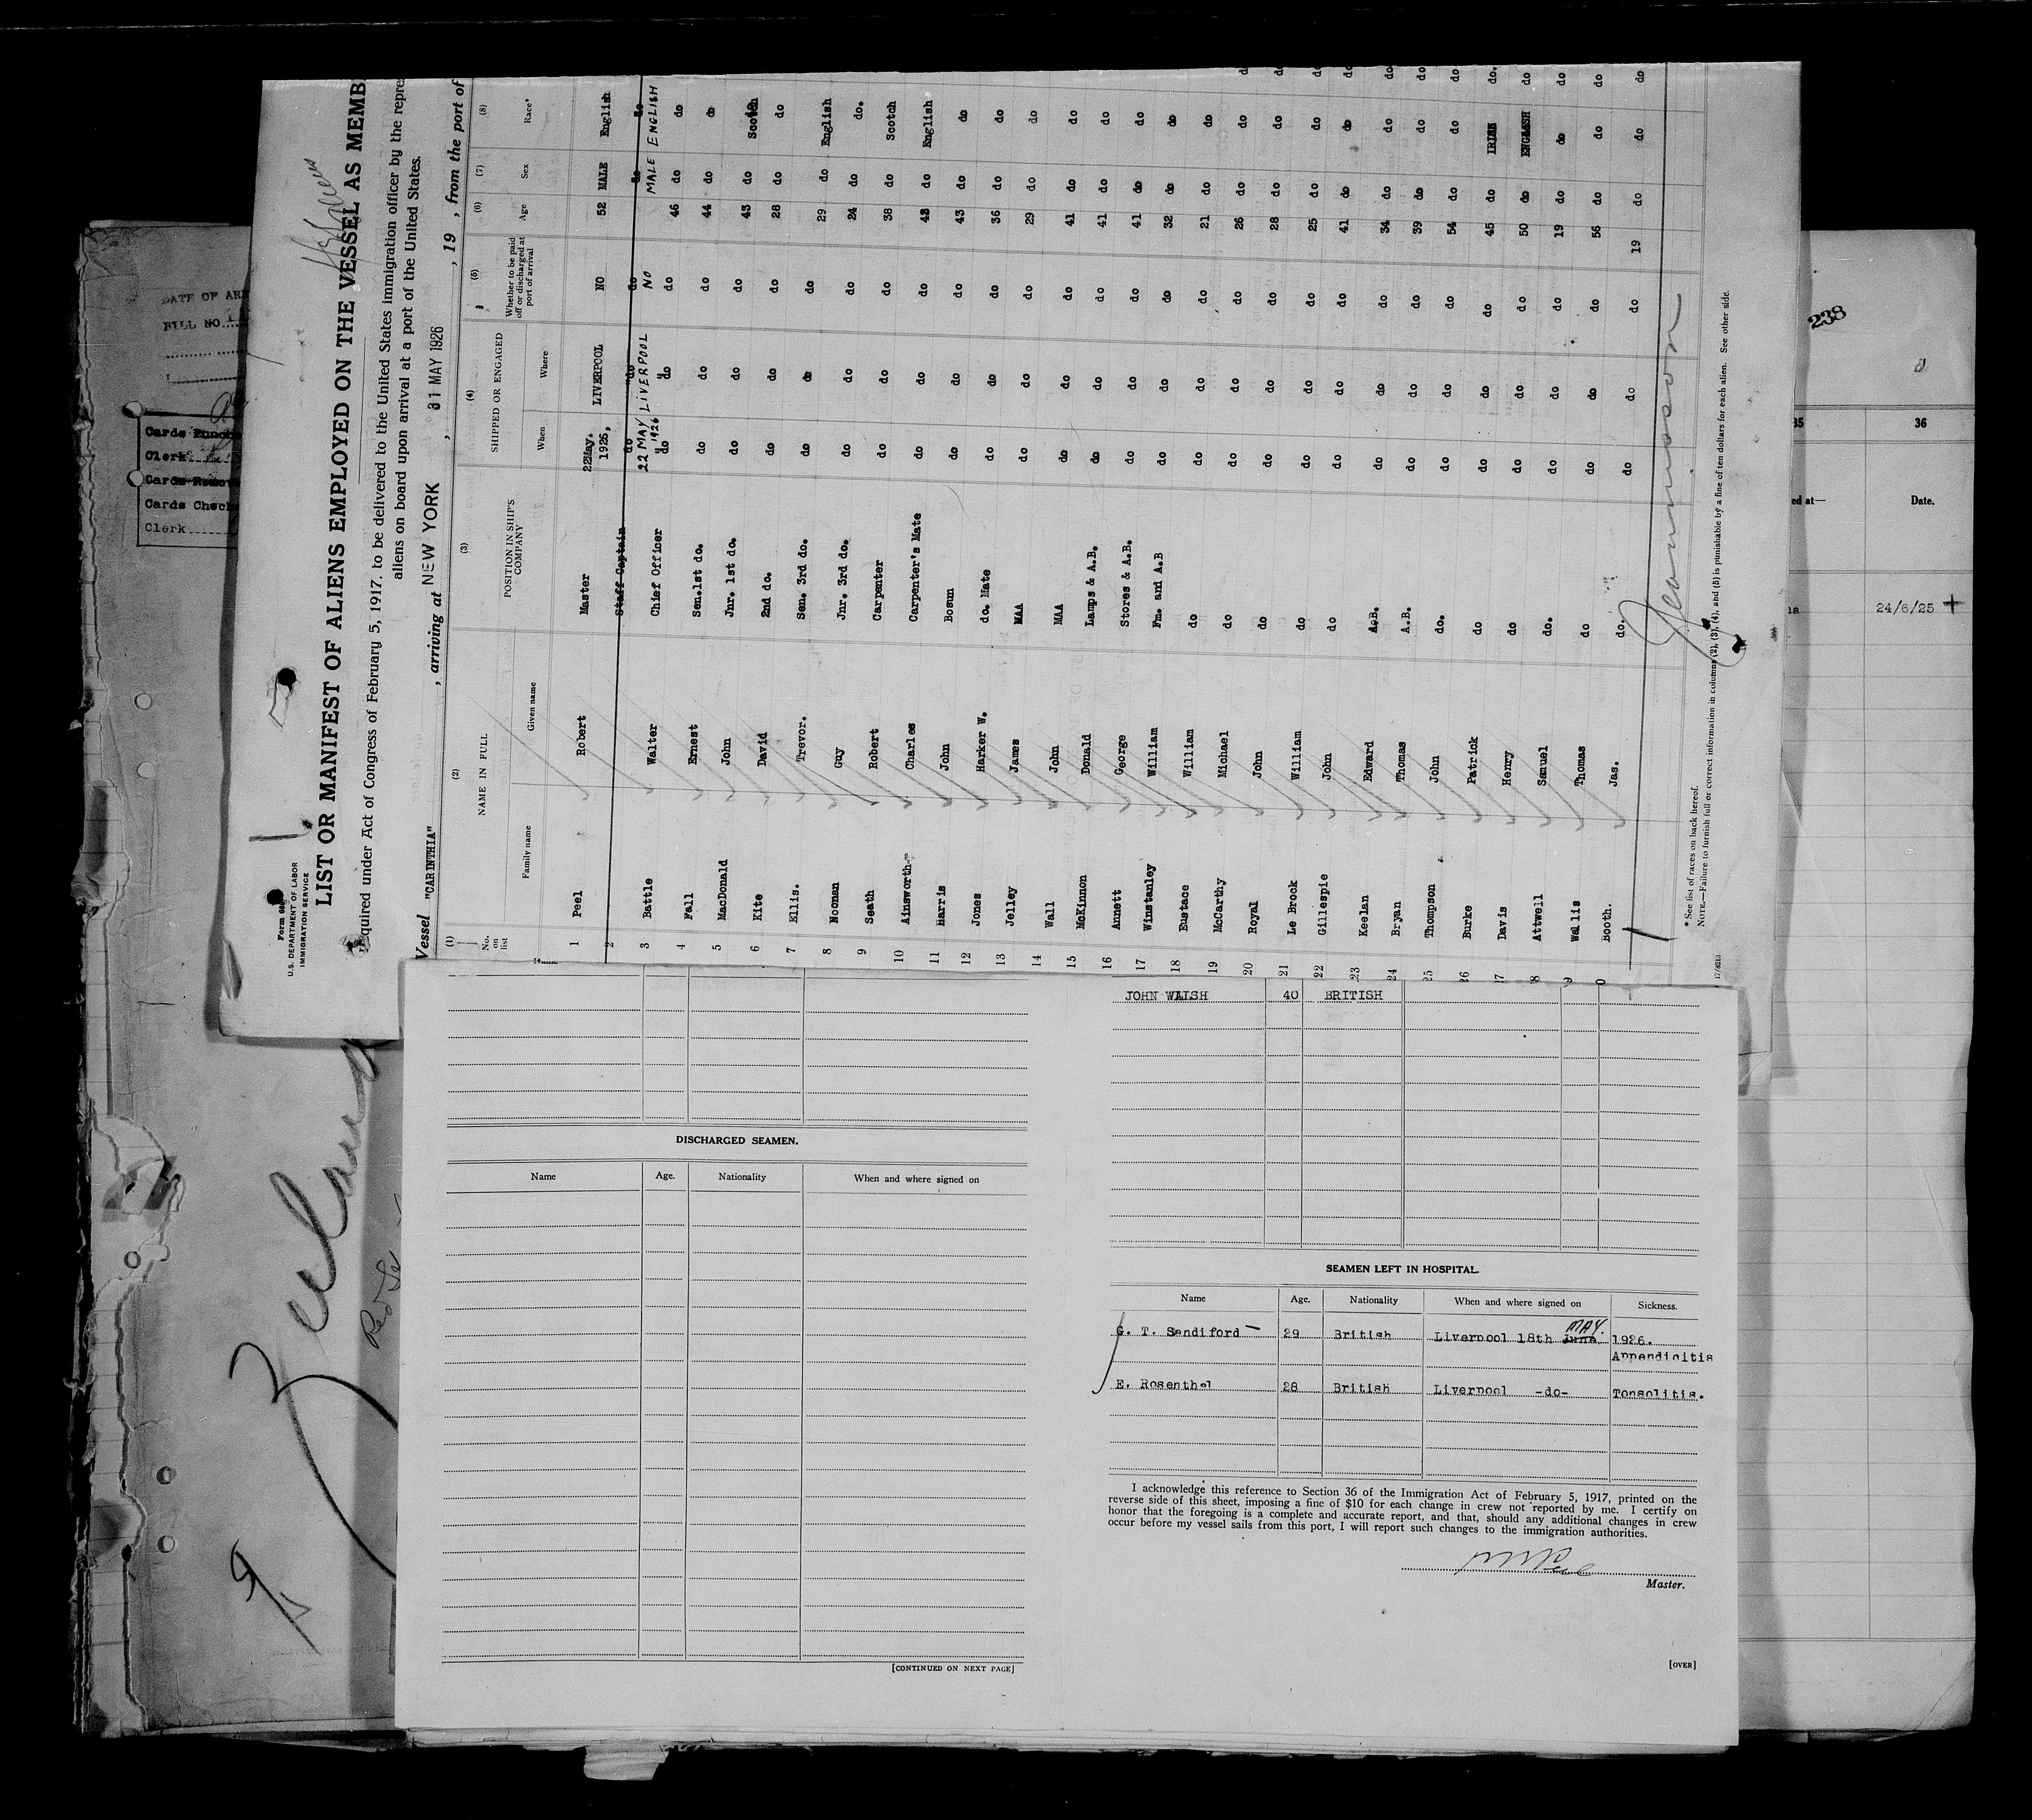 DATE OF ARR
BILL NO.
Cards Punch
Clerk
Cards
Cards Check
Clerk
Form 689
U.S. DEPARTMENT OF LABOR
IMMIGRATION SERVICE
LIST OR MANIFEST OF ALIENS EMPLOYED ON THE VESSEL AS MEMB
Required under Act of Congress of February 5, 1917, to be delivered to the United States immigration officer by the repre
aliens on board upon arrival at a port of the United States.
Vessel "CARINTHIA" , arriving at NEW YORK , 31 MAY 1926 , 19 , from the port of
(1) (2) (3) (4) (5) (6) (7) (8)
No. on list NAME IN FULL POSITION IN SHIP'S COMPANY SHIPPED OR ENGAGED Whether to be paid off or discharged at port of arrival Age Sex Race*
Family name Given name When Where
1 Peel Robert Master 22May. 1926, LIVERPOOL NO 52 MALE English
2 Staff Captain do do do do do
3 Battle Walter Chief Officer 22 MAY 1926 LIVERPOOL NO MALE ENGLISH
" do " do do 46 do do
4 Fall Ernest Sen.1st do. do do do 44 do do
5 MacDonald John Jnr. 1st do. do do do 43 do Scotch
6 Kite David 2nd do. do do do 28 do do
7 Ellis. Trevor. Sen. 3rd do. do do do 29 do English
8 Noonan Guy Jnr. 3rd do. do do do 24 do do.
9 Seath Robert Carpenter do do do 38 do Scotch
10 Ainsworth Charles Carpenter's Mate do do do 43 do English
11 Harris John Bosun do do do 43 do do
12 Jones Harker W. do. Mate do do do 36 do do
13 Jelley James MAA do do do 29 do do
14 Wall John MAA do do do 41 do do
15 McKinnon Donald Lamps & A.B. do do do 41 do do
16 Annett George Stores & A.B. do do do 41 do do
17 Winstanley William Fm. and A.B do do do 32 do do
18 Eustace William do do do do 21 do do
19 McCarthy Michael do do do do 26 do do
20 Royal John do do do do 28 do do
21 Le Brock William do do do do 25 do do
22 Gillespie John do do do do 41 do do
23 Keelan Edward A.B. do do do 34 do do
24 Bryan Thomas A.B. do do do 39 do do
25 Thompson John do. do do do 54 do do
26 Burke Patrick do do do do 45 do IRISH
27 Davis Henry do do do do 50 do ENGLISH
8 Attwell Samuel do. do do do 19 do do
9 Wallis Thomas do do do do 56 do do
0 Booth. Jas. do. do do do 19 do do
* See list of races on back hereof.
NOTE.—Failure to furnish full or correct information in columns (2), (3), (4), and (5) is punishable by a fine of ten dollars for each alien. See other side.
238
35 36
ed at— Date.
24/6/25
Zeeland
JOHN WALSH 40 BRITISH
DISCHARGED SEAMEN.
Name Age. Nationality When and where signed on
[CONTINUED ON NEXT PAGE]
SEAMEN LEFT IN HOSPITAL.
Name Age. Nationality When and where signed on Sickness.
MAY.
G. T. Sandiford 29 British Liverpool 18th June 1926.
Appendicitis
E. Rosenthal 28 British Liverpool -do- Tonsolitis.
I acknowledge this reference to Section 36 of the Immigration Act of February 5, 1917, printed on the
reverse side of this sheet, imposing a fine of $10 for each change in crew not reported by me. I certify on
honor that the foregoing is a complete and accurate report, and that, should any additional changes in crew
occur before my vessel sails from this port, I will report such changes to the immigration authorities.
Master.
[OVER]